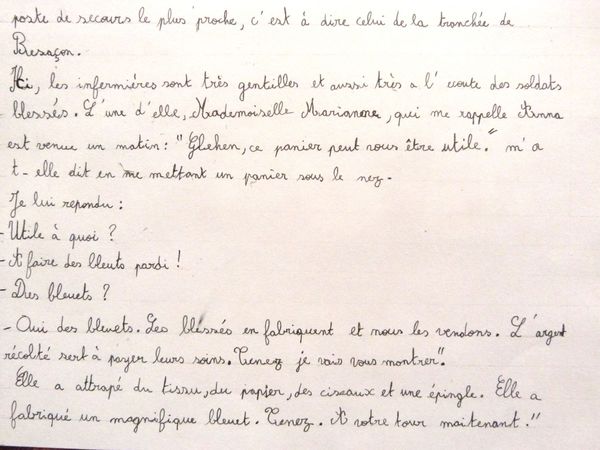 poste de secours le plus proche, c'est à dire celui de la tranchée de
Besaçon.
Ici, les infermières sont très gentilles et aussi très a l'ecoute des soldats
blessés. L'une d'elle, Mademoiselle Marianne, qui me rappelle Anna
est venue un matin: "Glehen, ce panier peut vous être utile." m'a
t-elle dit en me mettant un panier sous le nez.
Je lui repondu :
- Utile à quoi ?
- A faire des bleuts pardi !
- Des bleuets ?
- Oui des bleuets. Les blessés en fabriquent et nous les vendons. L'argent
récolté sert à payer leurs soins. Tenez je vais vous montrer".
Elle a attrapé du tissu, du papier, des ciseaux et une épingle. Elle a
fabriqué un magnifique bleuet. Tenez. A votre tour maitenant."